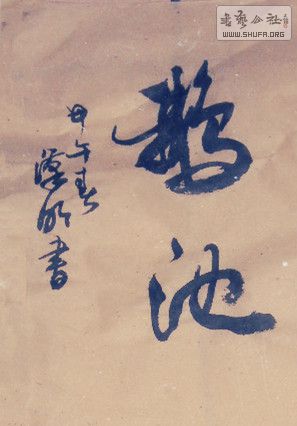 鹅池
甲午春
汉明书
書藝公社
WWW.SHUFA.ORG